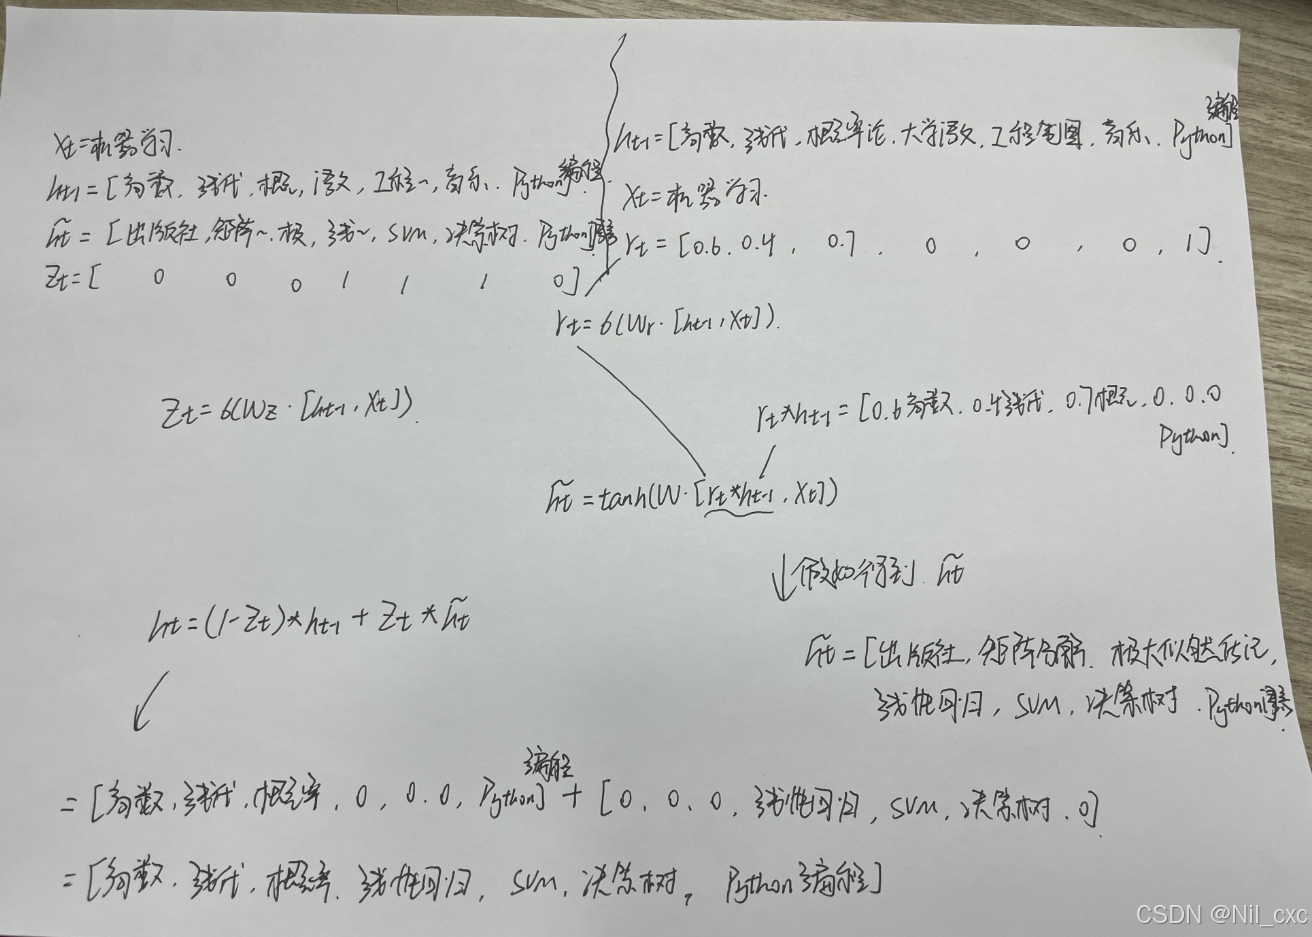 xt=机器学习.
ht-1=[高数, 线代, 概论, 语文, 工程~, 音乐, Python编程].
h̃t=[出版社, 矩阵~, 极, 线~, SVM, 决策树, Python]
Zt=[ 0 0 0 1 1 1 0]
Zt=6(Wz·[ht-1, Xt]).
ht=(1-Zt)*ht-1+Zt*h̃t
ht-1=[高数, 线代, 概率论, 大学语文, 工程制图, 音乐, Python编程]
Xt=机器学习.
rt=[0.6, 0.4, 0.7, 0, 0, 0, 1].
rt=6(Wr·[ht-1, Xt]).
rt*ht-1=[0.6高数, 0.4线代, 0.7概论, 0.0.0
Python].
h̃t=tanh(W·[rt*ht-1, Xt])
↓假如得到 h̃t
h̃t=[出版社, 矩阵分解, 极大似然估记,
线性回归, SVM, 决策树, Python]
=[高数, 线代, 概率, 0, 0.0, Python编程]+[0, 0, 0, 线性回归, SVM, 决策树, 0]
=[高数, 线代, 概率, 线性回归, SVM, 决策树, Python编程]
CSDN @Nil_cxc